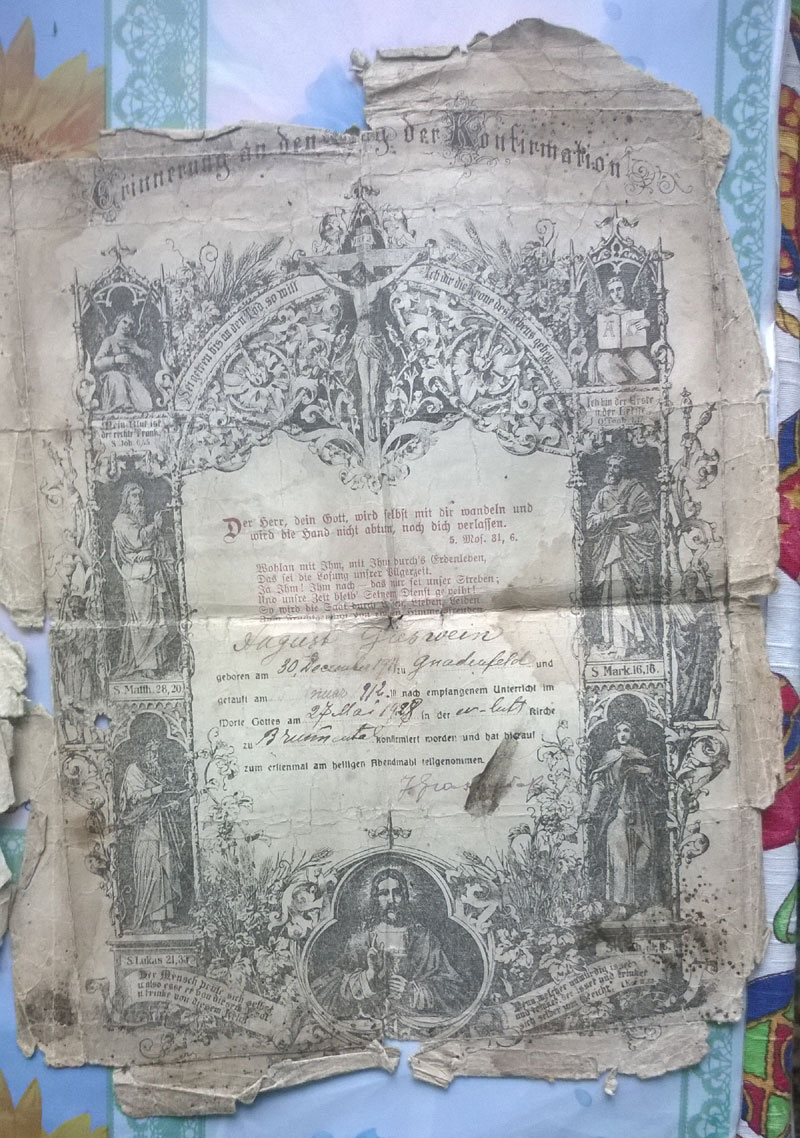 Erinnerung an den Tag der Konfirmation
Sei getreu bis an den Tod, so will
Ich dir die Krone des Lebens geben.
Mein Blut ist
der rechte Trank.
Ich bin der Erste
u. der Letzte.
Der Herr, dein Gott, wird selbst mit dir wandeln und
wird die Hand nicht abtun, noch dich verlassen.
5. Mos. 31, 6.
Wohlan mit Ihm, mit Ihm durch's Erdenleben,
Das sei die Losung unsrer Pilgerzeit.
Ja Ihm! Ihm nach — das nur sei unser Streben;
Und unsre Zeit bleib' Seinem Dienst geweiht!
So wird die Saat durch Lieben, Leiden
August
geboren am 30 December zu Gnadenfeld und
getauft am nach empfangenem Unterricht im
Worte Gottes am 27 Mai 1928 in der ev-luth Kirche
zu konfirmiert worden und hat hierauf
zum erstenmal am heiligen Abendmahl teilgenommen.
S. Matth. 28, 20
S. Mark. 16, 16
S. Lukas 21, 33
Der Mensch prüfe sich selbst
u. also esse er von diesem Brot
u. trinke von diesem Kelch
Denn welcher unwürdig isset
und trinket der isset und trinket
sich selber das Gericht.